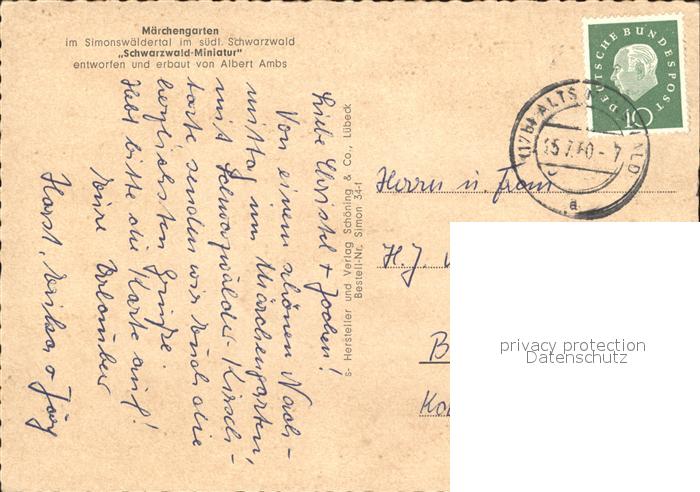 Märchengarten
im Simonswäldertal im südl. Schwarzwald
„Schwarzwald-Miniatur"
entworfen und erbaut von Albert Ambs
Liebe Christel + Jochen!
Von einem schönen Nach-
mittag im Märchengarten,
mit Schwarzwälder Kirsch-
torte senden wir Euch die
herzlichsten Grüße.
Hebt bitte die Karte auf!
Eure Urlauber
Horst, Erika + Jörg
s- Hersteller und Verlag Schöning & Co., Lübeck
Bestell-Nr. Simon 34-1
DEUTSCHE BUNDESPOST
10
(17b) ALTS
WALD
15.7.60-7
a
Herrn u. Frau
H.J.
B
privacy protection
Datenschutz